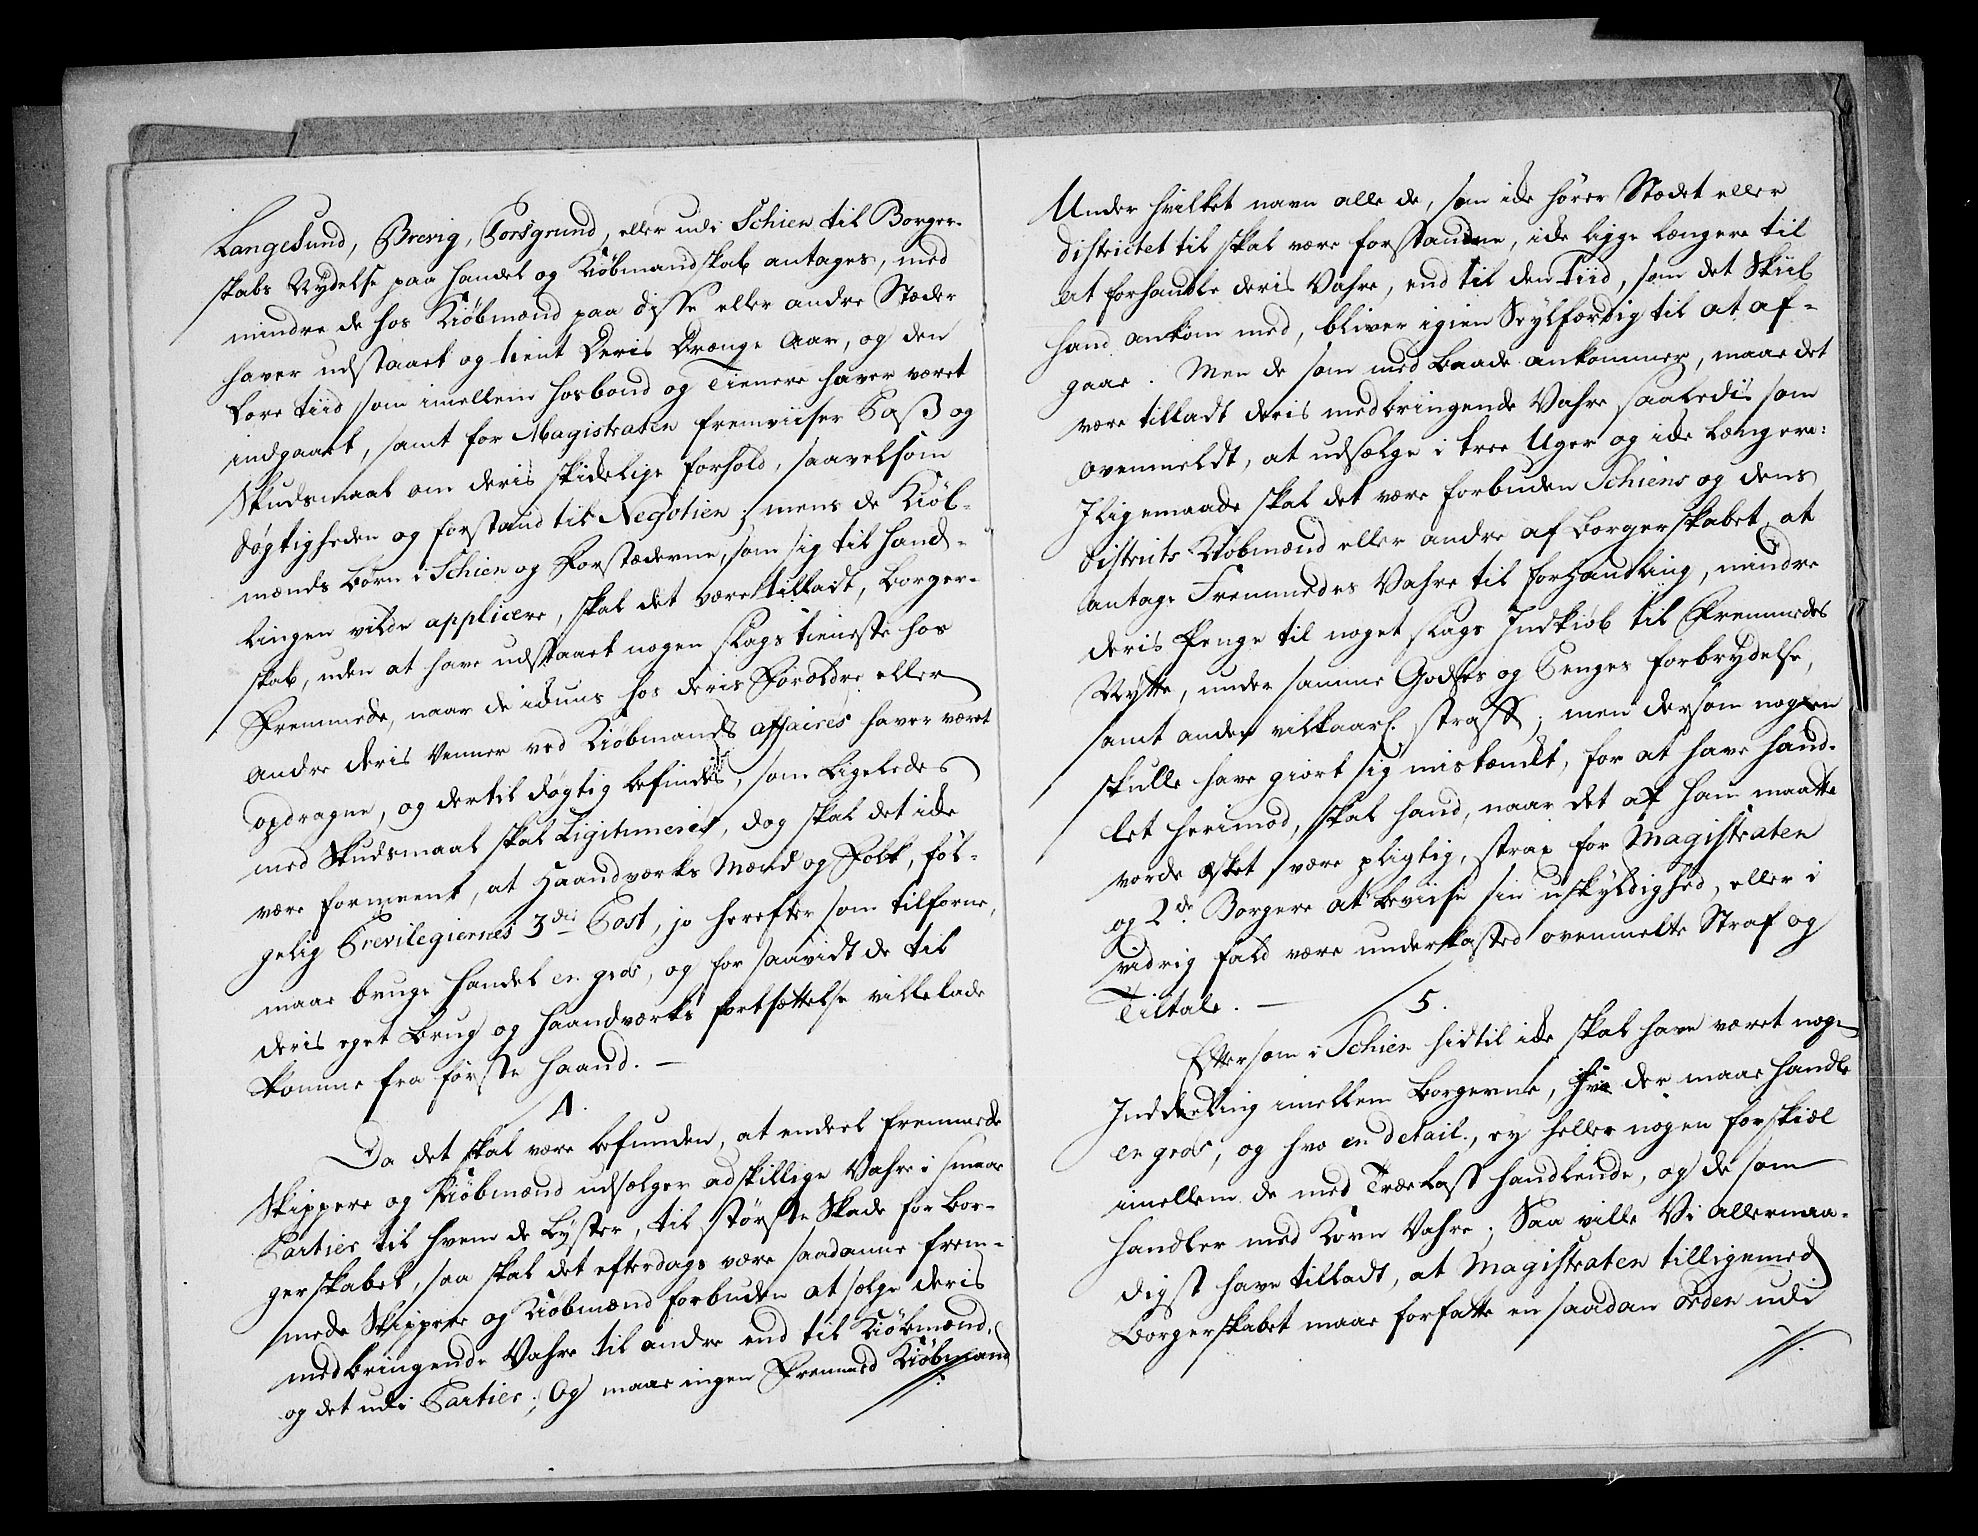 Langesund, Brevig, Porsgrund, eller udi Schien til Borger-
skabs Nydelse paa Handel og Kiøbmandskab antages, med
mindre de hos Kiøbmænd paa disse eller andre Stæder
haver udstaaet og tient deris Drænge Aar, og den
Lore tiid som imellem Hosbond og Tienere haver været
indgaaet, samt for Magistraten fremviiser Pass og
Skudsmaal om deris skickelige forhold, saavelsom
døgtigheden og forstand til Negotien; mens de Kiøb-
mænds børn i Schien og Forstæderne, som sig til Hand-
lingen vilde applicere, skal det være tilladt, Borger-
skab, uden at have udstaaet nogen slags tieneste hos
Fremmede, naar de ickuns hos deris Forældre eller
andre deris Venner ved Kiøbmands affaires haver været
opdragne, og dertil døgtig befindes, som ligeledes
med Skudsmaal skal Ligitimeres, dog skal det icke
være formeent, at Haandværks Mænd og Folk, føl-
gelig Previlegiernes 3die Post, jo herefter som tilforne,
maae bruge Handel en gros, og for saavidt de til
deris eget Brug og Haandværks fortsættelse ville lade
komme fra første Haand. —
4.
Da det skal være befunden, at endeel fremmede
Skippere og Kiøbmænd udsælger adskillige Vahre i smaae
Partier til hvem de lyster, til største Skade for Bor-
gerskabet, saa skal det efterdags være saadanne frem-
mede Skippere og Kiøbmænd forbuden at sælge deris
medbringende Vahre til andre end til Kiøbmænd,
og det udi Partier; Og maae ingen Fremmed Kiøbmand
Under hvilket navn alle de, som icke hører Stædet eller
districtet til skal være forstandne, icke ligge længere til
at forhandle deris Vahre, end til den Tiid, som det Skiib
hand ankom med, bliver igien Seylfærdig til at af-
gaae. Men de som med Baade ankommer, maae det
være tilladt deris medbringende Vahre saaledis som
ovenmeldt, at udsælge i tree Uger og icke længere:
Iligemaade skal det være forbuden Schiens og dens
districts Kiøbmænd eller andre af Borgerskabet at
antage Fremmedes Vahre til forhandling, mindre
deris Penge til noget slags Indkiøb til Fremmedes
Nytte, under samme Godses og Penges forbrydelse,
samt anden vilkaarl. straff; men dersom nogen
skulle have giort sig mistænckt, for at have hand-
let herimod, skal hand, naar det af ham maatte
vorde æsket være pligtig, strax for Magistraten
og 2de Borgere at bevise sin uskyldighed, eller i
vidrig fald være underkasted ovenmelte Straf og
Tiltale. —
5.
Efftersom i Schien hidtil icke skal have været nogen
Inddeeling imellem Borgerne, hvo der maae handle
en gros, og hvo en detail., ey heller nogen forskiæl
imellem de med Træe Last handlende, og de som
handler med Korn Vahre; Saa ville Vi allernaa-
digst have tilladt, at Magistraten tilligemed
Borgerskabet maae forfatte en saadan Orden udi